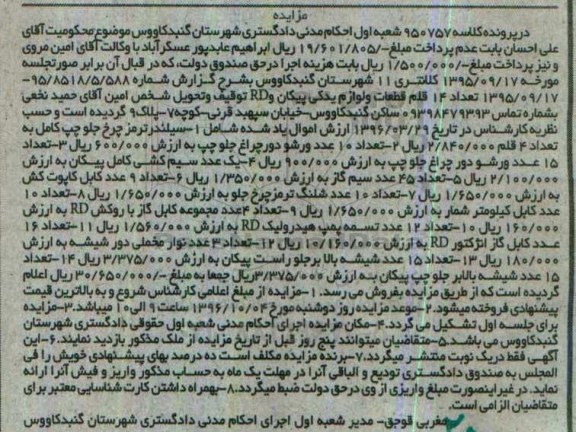 مزایده
در پرونده کلاسه ۹۵۰۷۵۷ شعبه اول احکام مدنی دادگستری شهرستان گنبدکاووس موضوع محکومیت آقای
علی احسان بابت عدم پرداخت مبلغ-/۱۹/۶۰۱/۸۰۵ ریال ابراهیم عابدپور عسگرآباد با وکالت آقای امین مروی
و نیز پرداخت مبلغ-/۱/۵۰۰/۰۰۰ ریال بابت هزینه اجرا در حق صندوق دولت، که در قبال آن برابر صورتجلسه
مورخه ۱۳۹۵/۰۹/۱۷ کلانتری ۱۱ شهرستان گنبدکاووس بشرح گزارش شماره ۹۵/۸۵۱۸/۵/۵۸۸-
۱۳۹۵/۰۹/۱۷ تعداد ۱۴ قلم قطعات ولوازم یدکی پیکان وRD توقیف وتحویل شخص امین آقای حمید نخعی
بشماره تماس ۰۹۳۹۸۴۷۹۳۹۳ ساکن گنبدکاووس-خیابان سپهبد قرنی-کوچه۷-پلاک۹ گردیده است و حسب
نظریه کارشناس در تاریخ ۱۳۹۶/۰۳/۲۹ ارزش اموال یاد شده شامل ۱-سیلندر ترمز چرخ جلو چپ کامل به
تعداد ۴ قلم ۲/۸۴۰/۰۰۰ ریال ۲-تعداد ۱۰ عدد ورشو دور چراغ جلو چپ به ارزش ۶۰۰/۰۰۰ ریال ۳-تعداد
۱۵ عدد ورشو دور چراغ جلو چپ به ارزش ۹۰۰/۰۰۰ ریال ۴-یک عدد سیم کشی کامل پیکان به ارزش
۲/۱۰۰/۰۰۰ ریال ۵-تعداد ۴۵ عدد سیم گاز به ارزش ۱/۳۵۰/۰۰۰ ریال ۶-تعداد ۹ عدد کابل کاپوت کش
به ارزش ۱/۶۵۰/۰۰۰ ریال ۷-تعداد ۱۰ عدد شلنگ ترمز چرخ جلو به ارزش ۱/۶۵۰/۰۰۰ ریال ۸-تعداد ۱۰
عدد کابل کیلومتر شمار به ارزش ۱/۶۵۰/۰۰۰ ریال ۹-تعداد ۴عدد مجموعه کابل گاز با روکش RD به ارزش
۱۶۰/۰۰۰ ریال ۱۰-تعداد ۱۲ عدد تسمه پمپ هیدرولیک RD به ارزش ۱/۵۶۰/۰۰۰ ریال ۱۱-تعداد ۱۶
عدد کابل گاز انژکتور RD به ارزش ۱۰/۱۶۰/۰۰۰ ریال ۱۲-تعداد ۳ عدد نوار مخملی دور شیشه به ارزش
۱۸۰/۰۰۰ ریال ۱۳-تعداد ۱۵ عدد شیشه بالا بر جلو راست پیکان به ارزش ۳/۳۷۵/۰۰۰ ریال ۱۴-تعداد
۱۵ عدد شیشه بالابر جلو چپ پیکان به ارزش ۳/۳۷۵/۰۰۰ریال جمعا به مبلغ -/۳۰/۶۵۰/۰۰۰ ریال اعلام
گردیده است که از طریق مزایده بفروش می رسد. ۱-مزایده از مبلغ اعلامی کارشناس شروع و به بالاترین قیمت
پیشنهادی فروخته میشود. ۲-موعد مزایده روز دوشنبه مورخ ۱۳۹۶/۱۰/۰۴ ساعت ۹ الی ۱۰ میباشد. ۳-مزایده
برای جلسه اول تشکیل می گردد. ۴-مکان مزایده اجرای احکام مدنی شعبه اول حقوقی دادگستری شهرستان
گنبدکاووس می باشد. ۵-متقاضیان میتوانند پنج روز قبل از تاریخ مزایده از ملک مذکور بازدید نمایند. ۶-این
آگهی فقط در یک نوبت منتشر میگردد. ۷-برنده مزایده مکلف است ده درصد بهای پیشنهادی خویش را فی
المجلس به صندوق دادگستری تودیع و الباقی آنرا در مهلت یک ماه به حساب مذکور واریز و فیش آنرا ارائه
نماید. در غیر اینصورت مبلغ واریزی از وی در حق دولت ضبط میگردد. ۸-بهمراه داشتن کارت شناسایی معتبر برای
متقاضیان الزامی است.
مغربی قوجق- مدیر شعبه اول اجرای احکام مدنی دادگستری شهرستان گنبدکاووس